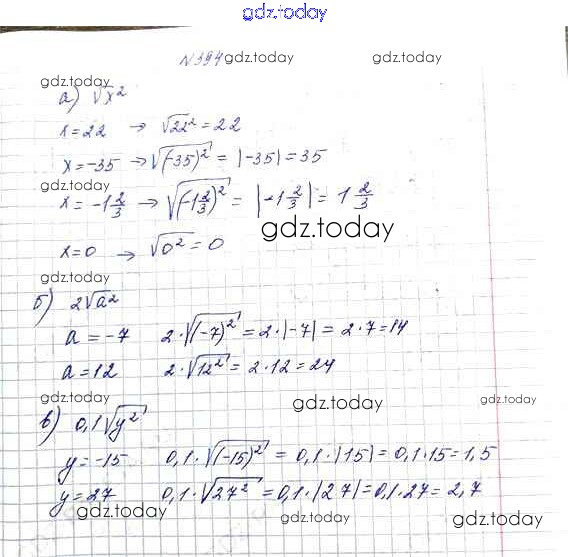 gdz.today
N394 gdz.today gdz.today
gdz.today
а) √x²
x=22 → √22² = 22
gdz.today gdz.today
x=-35 → √(-35)² = |-35| = 35
gdz.today
x = -1 2/3 → √(-1 2/3)² = |-1 2/3| = 1 2/3
gdz.today
x=0 → √0² = 0
gdz.today
б) 2√a²
a = -7 2·√(-7)² = 2·|-7| = 2·7=14
a = 12 2·√12² = 2·12 = 24
gdz.today gdz.today
в) 0,1√y²
y = -15 0,1·√(-15)² = 0,1·|15| = 0,1·15=1,5
y = 27 0,1·√27² = 0,1·|27| = 0,1·27 = 2,7
gdz.today gdz.today gdz.today